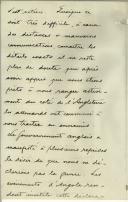 s'est retiré. Quoique ce
soit très difficile, à cause
des distances et mauvaises
communications connaître les
détails exacts il ne reste
plus de doute que après
avoir appris que nous étions
prêts à nous ranger active-
ment du côté de l'Angleterre
les allemands ont commencé à
nous traiter en ennemis.
Le Gouvernement anglais a
manifesté à plusieurs reprises
le désir de que nous ne dé-
clarions pas la guerre. Les
événements d'Angola ren-
dent inutile cette déclara-